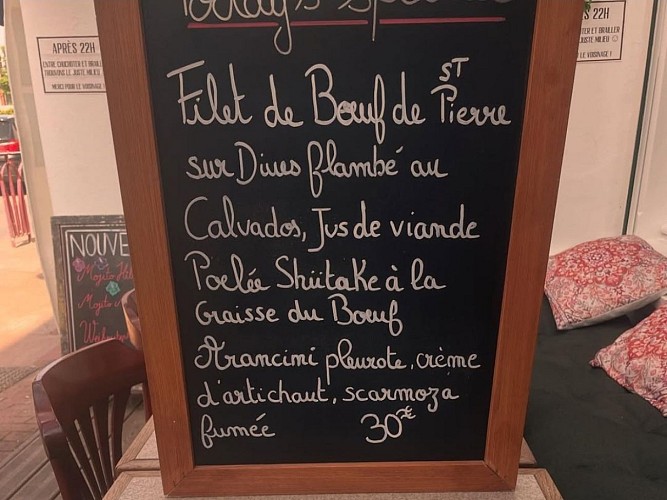 Today's Special
Filet de Bœuf de ST Pierre
sur Dives flambé au
Calvados, Jus de viande
Poelée Shiitake à la
Graisse du Bœuf
Arancini pleurote, crème
d'artichaut, scarmoza
fumée 30€
APRÈS 22H
ENTRE CHUCHOTER ET BRAILLER
TROUVONS LE JUSTE MILIEU
MERCI POUR LE VOISINAGE
22H
OTER ET BRAILLER
JUSTE MILIEU
LE VOISINAGE !
NOUVE
Mojito
Mojito